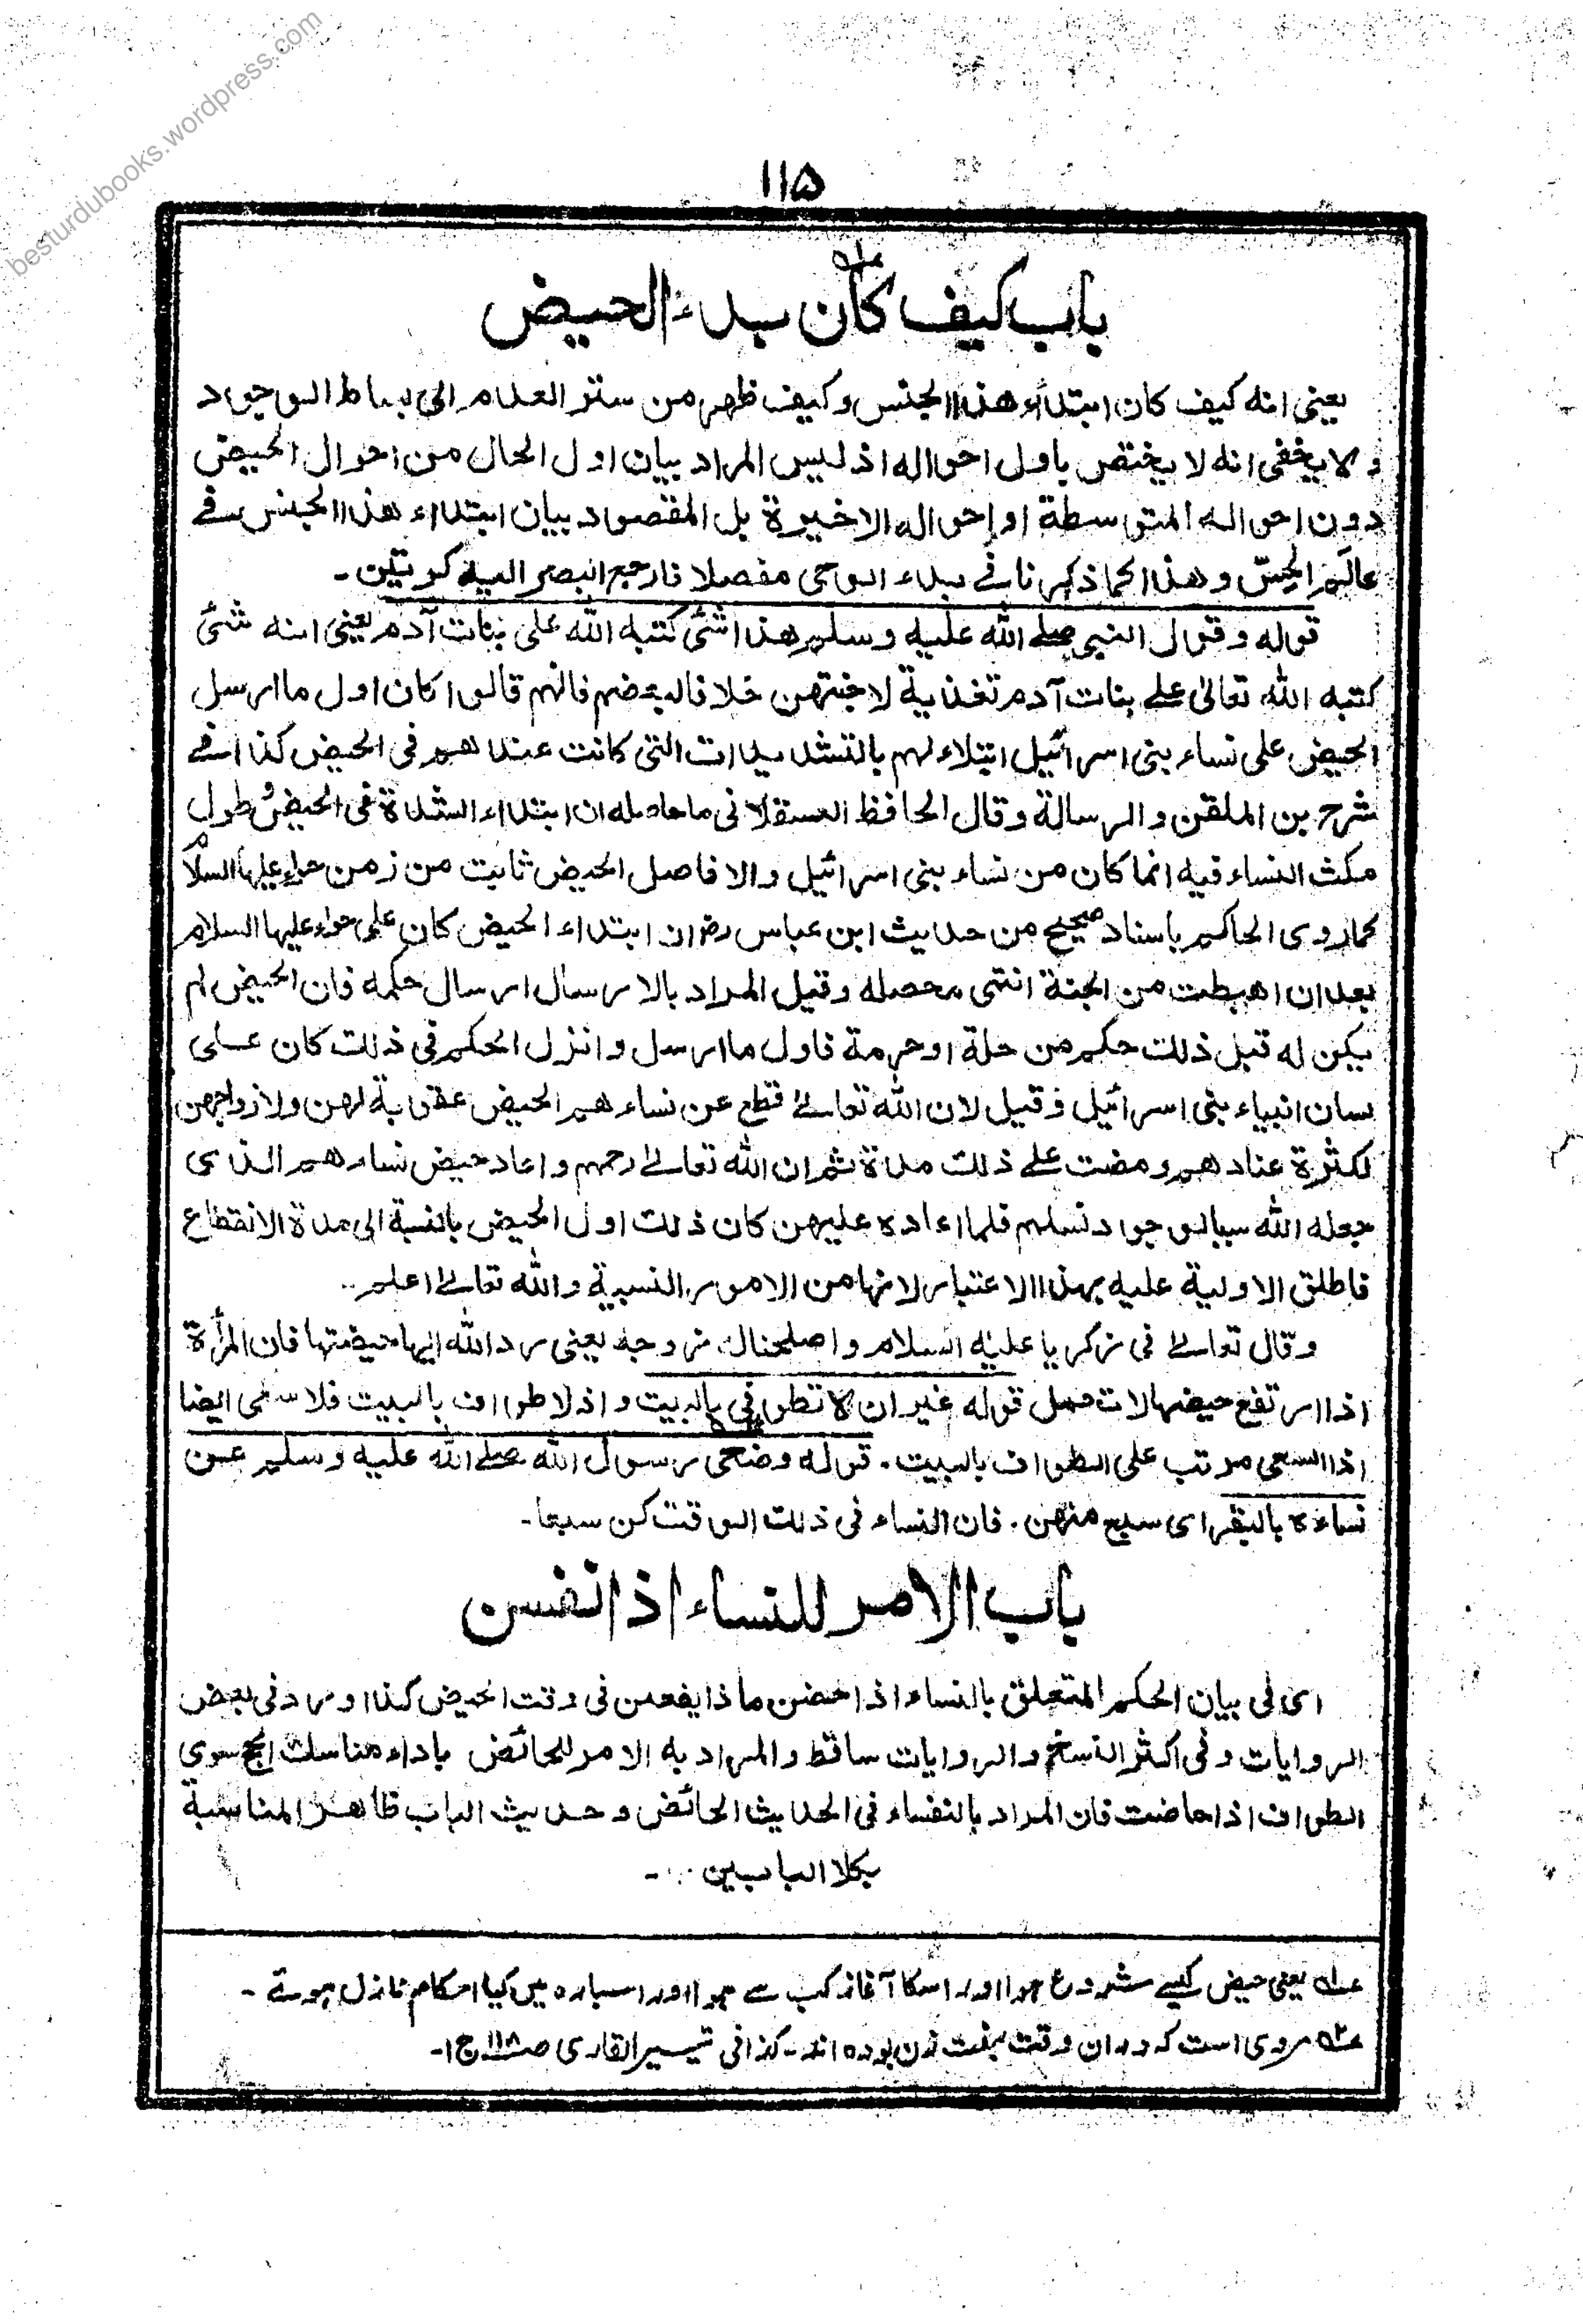 besturdubooks.wordpress.com
١١۵
باب كيف كان بدء الحيض
يعنى انه كيف كان ابتداء هذا الجنس وكيف ظهر من ستر العدم الى بساط الوجود
ولا يخفى انه لا يختص باول احواله اذ ليس المراد بيان اول الحال من احوال الحيض
دون احواله المتوسطة او احواله الاخيرة بل المقصود بيان ابتداء هذا الجنس فے
عالَم الحِسّ وهذا كما ذكرنا فے بدء الوحى مفصلا فارجع البصر اليه كرتين۔
قوله وقول النبى صلے الله عليه وسلم هذا شئ كتبه الله على بنات آدم يعنى انه شئ
كتبه الله تعالىٰ علے بنات آدم تغذية لاجنتهن خلافا لبعضهم فانهم قالوا كان اول ما ارسل
الحيض على نساء بنى اسرائيل ابتلاء لهم بالتشديدات التى كانت عندهم فى الحيض كذا فے
شرح بن الملقن والرسالة وقال الحافظ العسقلانى ما حاصله ان ابتداء الشدة فى الحيض وطول
مكث النساء فيه انما كان من نساء بنى اسرائيل والا فاصل الحيض ثابت من زمن حواء عليها السلام
كما روى الحاكم باسناد صحيح من حديث ابن عباس رض ان ابتداء الحيض كان على حواء عليها السلام
بعد ان اهبطت من الجنة انتهى محصله وقيل المراد بالارسال ارسال حكمه فان الحيض لم
يكن له قبل ذلك حكم من حلة او حرمة فاول ما ارسل وانزل الحكم فى ذلك كان على
لسان انبياء بنى اسرائيل وقيل لان الله تعالےٰ قطع عن نساءهم الحيض عقوبة لهن ولازواجهن
لكثرة عنادهم ومضت علے ذلك مدة ثم ان الله تعالےٰ رحمهم واعاد حيض نساءهم الذى
جعله الله سببا لوجود نسلهم فلما اعاده عليهن كان ذلك اول الحيض بالنسبة الى مدة الانقطاع
فاطلق الاولية عليه بهذا الاعتبار لانها من الامور النسبية والله تعالےٰ اعلم..
وقال تعالےٰ فى زكريا عليه السلام واصلحنا له زوجه يعنى رد الله اليها حيضتها فان المرأة
اذا ارتفع حيضها لا تحمل قوله غير ان لا تطوفى بالبيت واذ لا طواف بالبيت فلا سعى ايضا
اذ السعى مرتب على الطواف بالبيت۔ قوله وضحى رسول الله صلے الله عليه وسلم عن
نساءه بالبقر اى سبع منهن۔ فان النساء فى ذلك الوقت كن سبعا۔
باب الامر للنساء اذا نفسن
اى فى بيان الحكم المتعلق بالنساء اذا حضن ماذا يفعلن فى وقت الحيض كذا ورد فى بعض
الروايات وفى اكثر النسخ والروايات ساقط والمراد به الامر للحائض باداء مناسك الحج سوى
الطواف اذا حاضت فان المراد بالنفساء فى الحديث الحائض وحديث الباب ظاهر المناسبة
بكلا البابين۔
عـ۱ـه يعنى حيض كيسے شروع ہوا اور اسكا آغاز كب سے ہوا اور اسباره میں كيا احكام نازل ہوئے۔
عـ۲ـه مروى است كہ در ان وقت ہفت زن بوده اند۔ كذا فى تيسير القارى صـ۱۱۸ ج ۱۔